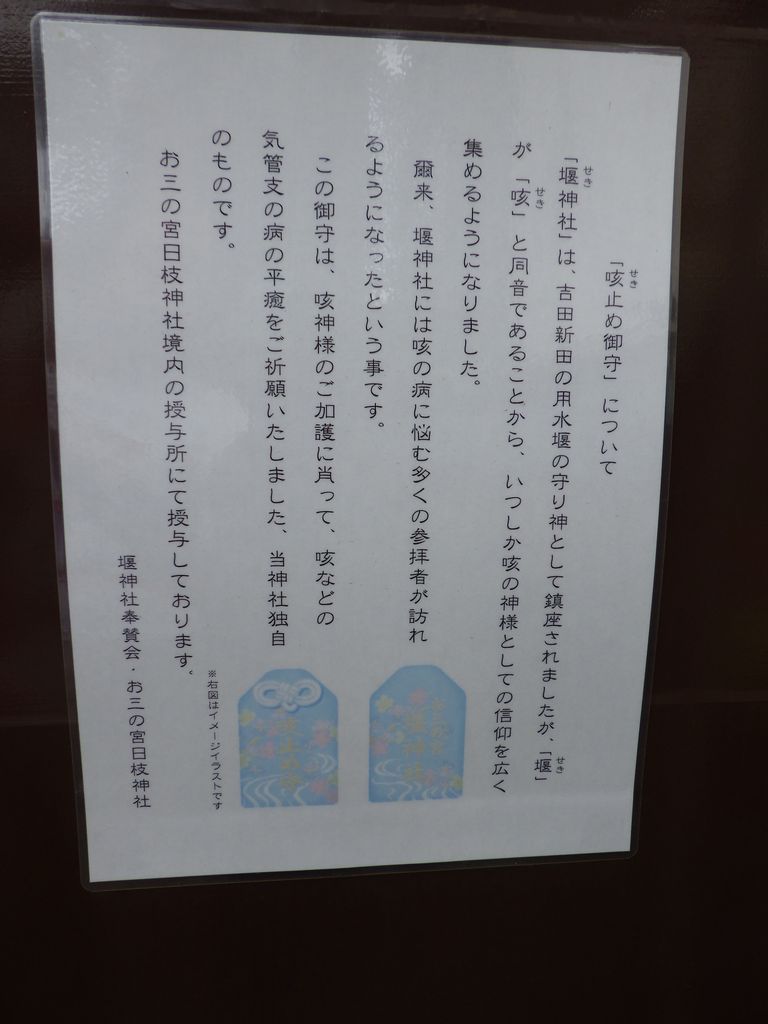 「咳止め御守」について
「堰神社」は、吉田新田の用水堰の守り神として鎮座されましたが、「堰」
が「咳」と同音であることから、いつしか咳の神様としての信仰を広く
集めるようになりました。
爾来、堰神社には咳の病に悩む多くの参拝者が訪れ
るようになったという事です。
この御守は、咳神様のご加護に肖って、咳などの
気管支の病の平癒をご祈願いたしました、当神社独自
のものです。
お三の宮日枝神社境内の授与所にて授与しております。
堰神社奉賛会・お三の宮日枝神社
お三の宮
堰神社
咳止め守
※右図はイメージイラストです